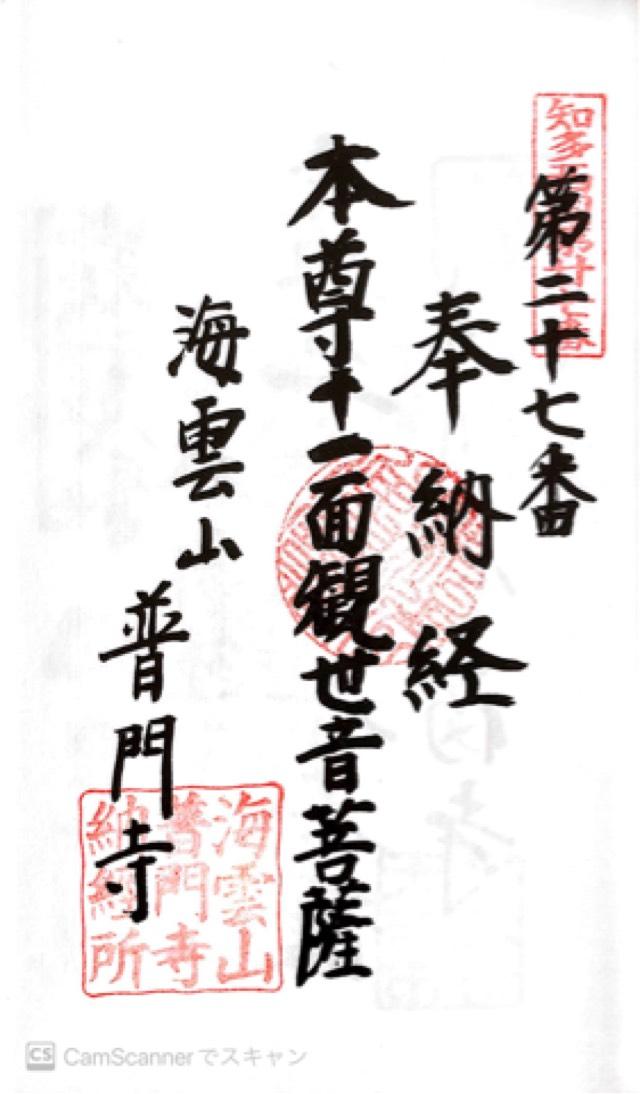 第二十七番
奉納経
本尊十一面観世音菩薩
海雲山
普門寺
海雲山
普門寺
納経所
CS CamScannerでスキャン